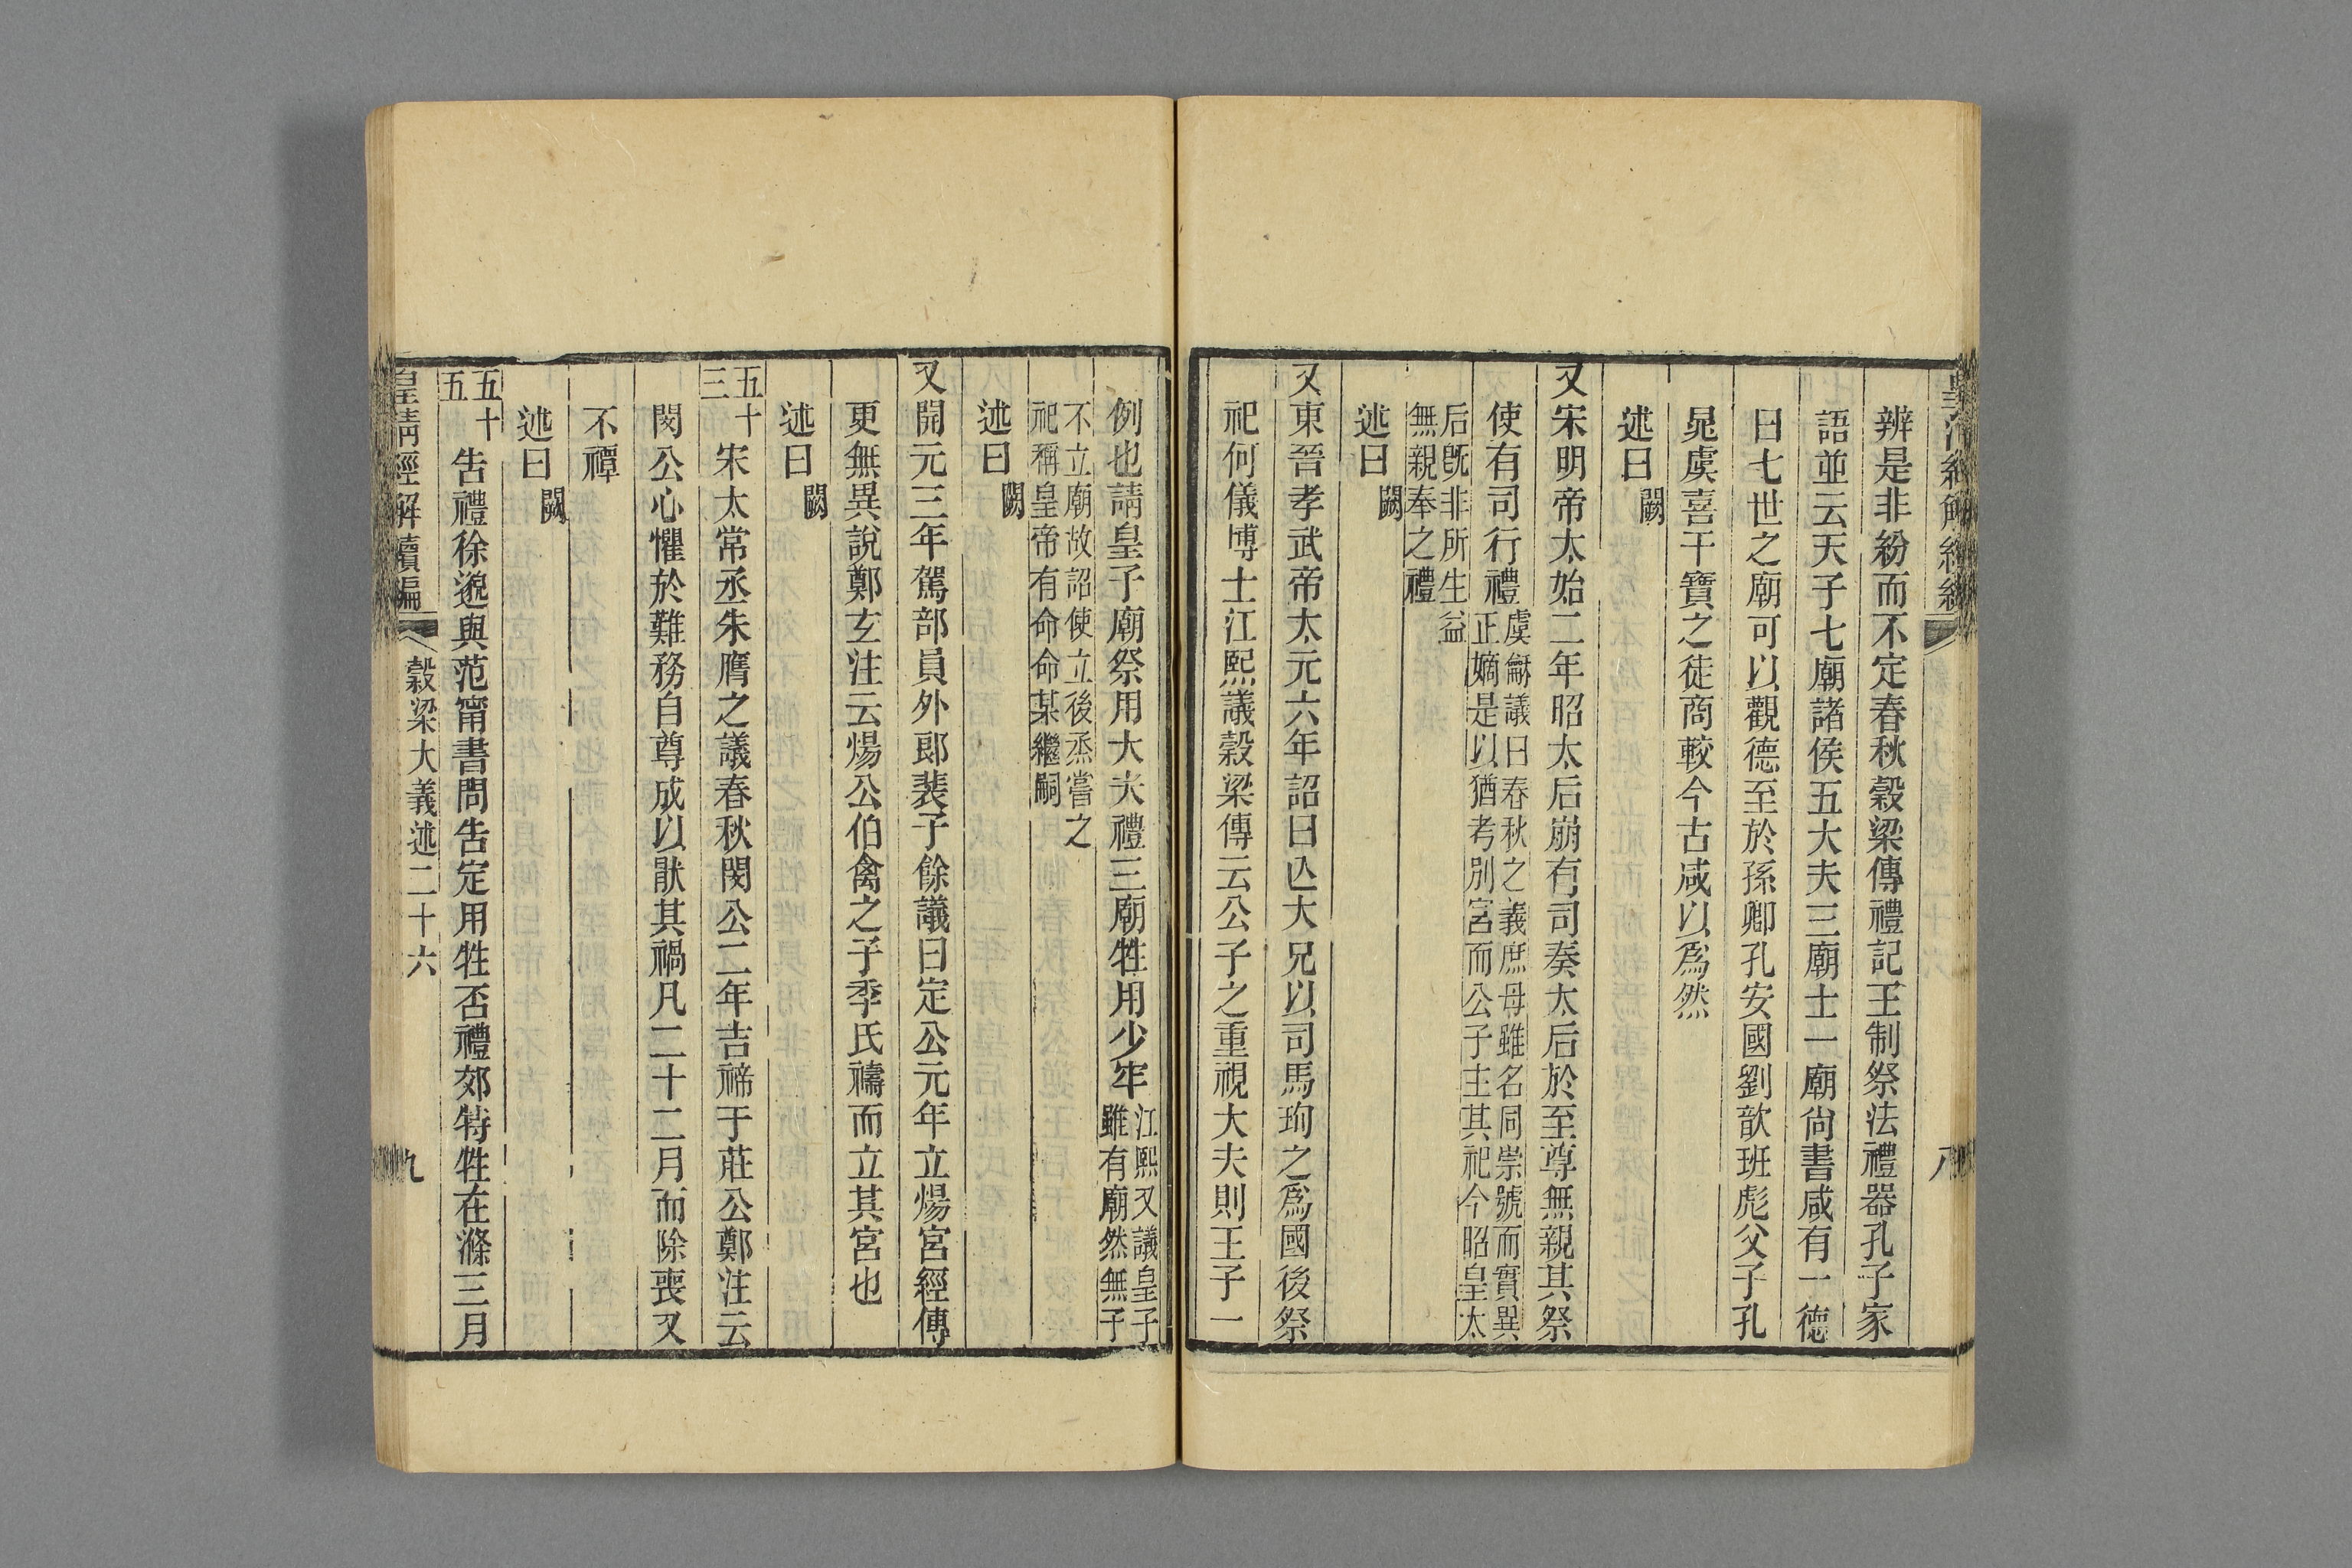 辨是非紛而不定春秋穀梁傳禮記王制祭法禮器孔子家
語並云天子七廟諸侯五大夫三廟士一廟尙書咸有一德
曰七世之廟可以觀德至於孫卿孔安國劉歆班彪父子孔
晁虞喜干寶之徒商較今古咸以爲然
述曰闕
又宋明帝太始二年昭太后崩有司奏太后於至尊無親其祭
使有司行禮
虞龢議曰春秋之義庶母雖名同崇號而實異
正嫡是以猶考別宮而公子主其祀今昭皇太
后旣非所生益
無親奉之禮
述曰闕
又東晉孝武帝太元六年詔曰亾大兄以司馬珣之爲國後祭
祀何儀博士江熙議穀梁傳云公子之重視大夫則王子一
八
例也請皇子廟祭用大夫禮三廟牲用少牢
江熙又議皇子
雖有廟然無子
不立廟故詔使立後烝嘗之
祀稱皇帝有命命某繼嗣
述曰闕
又開元三年駕部員外郎裴子餘議曰定公元年立煬宮經傳
更無異說鄭玄注云煬公伯禽之子季氏禱而立其宮也
述曰闕
五十三
宋太常丞朱膺之議春秋閔公二年吉禘于莊公鄭注云
閔公心懼於難務自尊成以厭其禍凡二十二月而除喪又
不禫
述曰闕
五十五
告禮徐邈與范甯書問告定用牲否禮郊特牲在滌三月
皇淸經解續編
穀梁大義述二十六
九